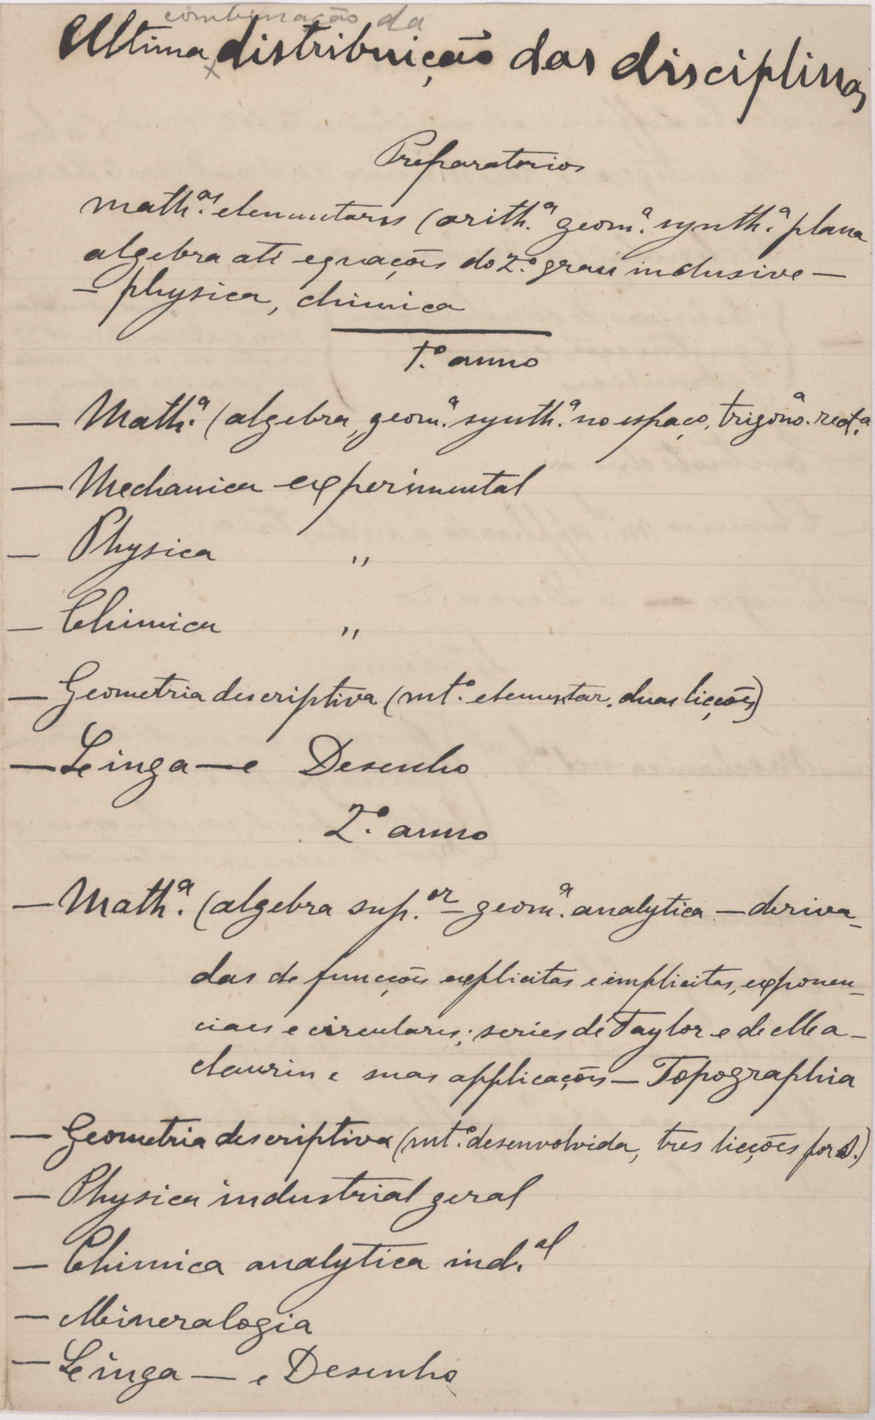 combinação da
Ultima distribuição das disciplinas
Preparatorios
math.as elementares (arith.a geom.a synth.a plana
algebra até equações do 2.o grau inclusive —
– physica, chimica
1.o anno
— Math.a (algebra, geom.a synth.a no espaço, trigon.a rect.a
— Mechanica experimental
— Physica "
— Chimica "
— Geometria descriptiva (mt.o elementar, duas licções)
— Linga — e Desenho
2.o anno
— Math.a (algebra sup.or – geom.a analytica — deriva-
das de funcções explicitas e implicitas, exponen-
ciaes e circulares; series de Taylor e de Ma-
claurin e suas applicações — Topographia
— Geometria descriptiva (mt.o desenvolvida, tres licções por s.)
— Physica industrial geral
— Chimica analytica ind.al
— Mineralogia
— Linga — e Desenho